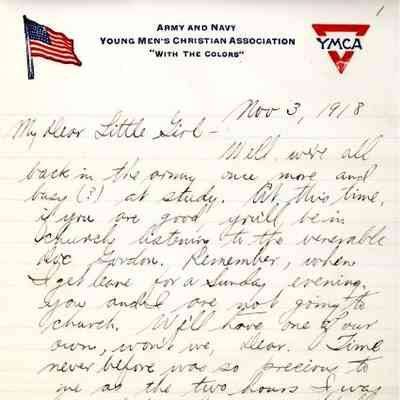 1
ARMY AND NAVY
YOUNG MEN'S CHRISTIAN ASSOCIATION
"WITH THE COLORS"
YMCA
Nov 3, 1918
My Dear Little Girl –
Well we're all
back in the army once more and
busy (?) at study. At this time,
if you are good you'll be in
church listening to the venerable
Doc Gordon. Remember, when
I get leave for a Sunday evening,
you and I are not going to
church. We'll have one of our
own, won't we, dear. Time
never before was so precious to
me as the two hours I was